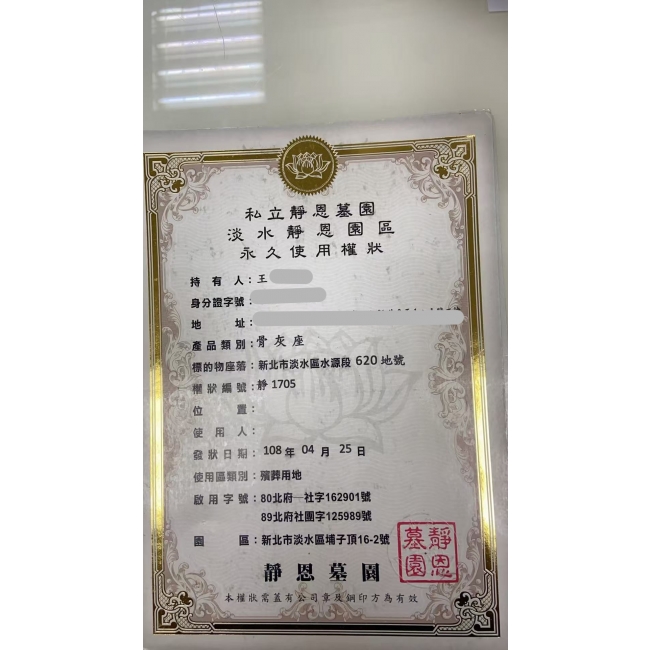 私立靜恩墓園
淡水靜恩園區
永久使用權狀
持有人：王
身分證字號：
地址：
產品類別：骨灰座
標的物座落：新北市淡水區水源段 620 地號
權狀編號：靜 1705
位置：
使用人：
發狀日期：108 年 04 月 25 日
使用區類別：殯葬用地
啟用字號：80北府一社字162901號
89北府社團字125989號
園區：新北市淡水區埔子頂16-2號
靜恩墓園
靜恩墓園
本權狀需蓋有公司章及鋼印方為有效